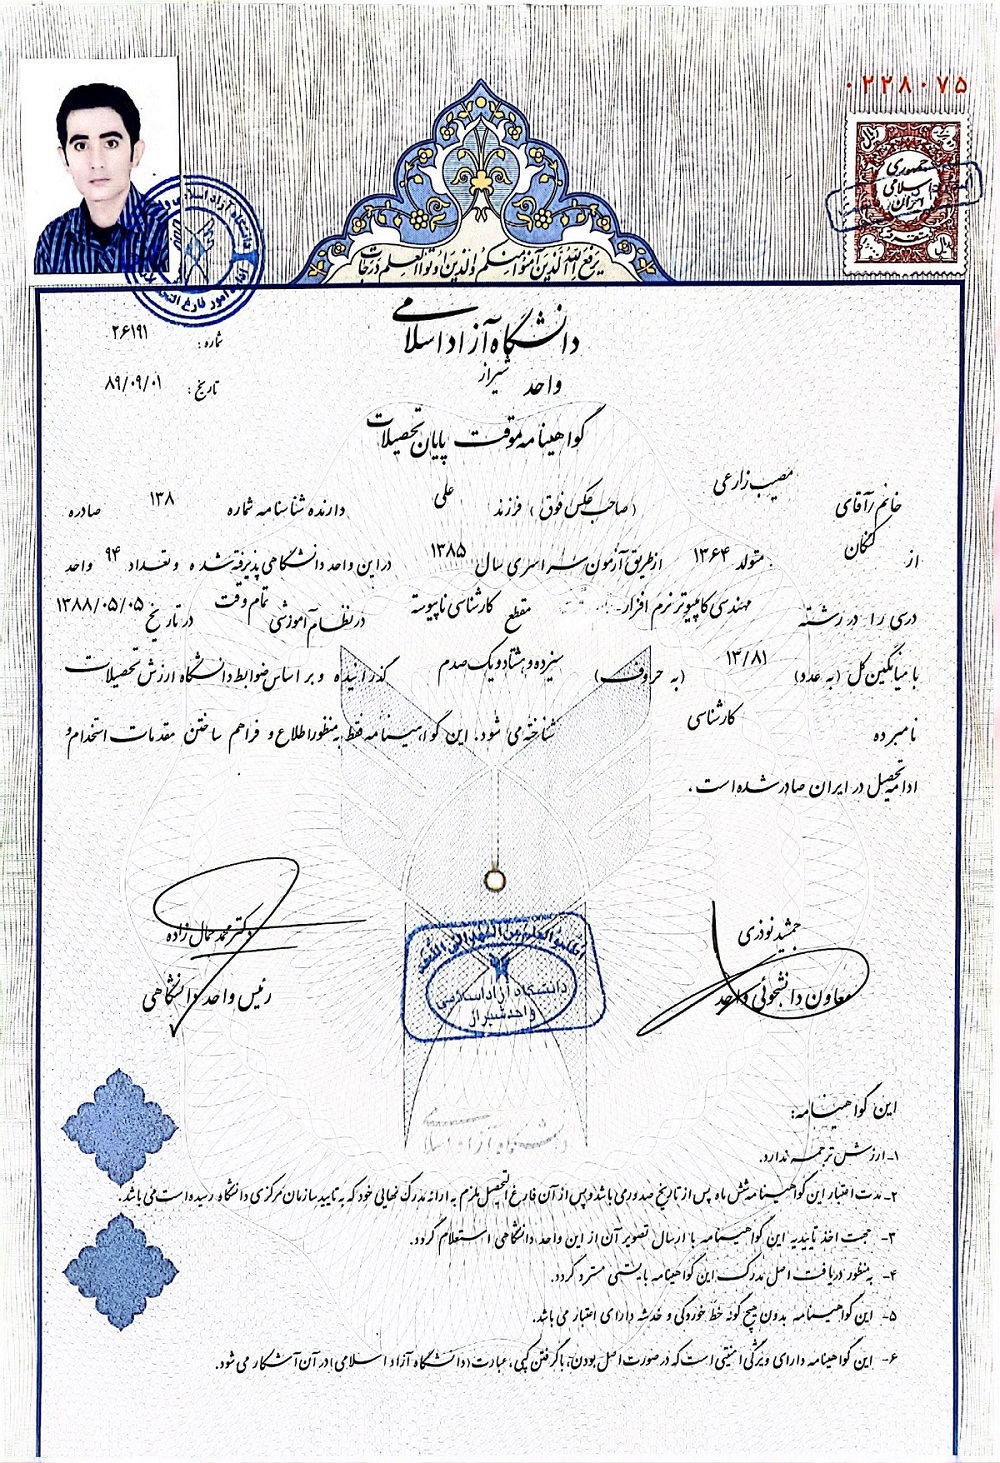 ۰۲۲۸۰۷۵
جمهوری
اسلامی
ایران
یرفع الله الذین آمنوا منکم والذین اوتوا العلم درجات
دانشگاه آزاد اسلامی
واحد شیراز
شماره : ۲۶۱۹۱
تاریخ : ۸۹/۰۹/۰۱
گواهینامه موقت پایان تحصیلات
خانم/آقای مصیب زارعی (صاحب عکس فوق) فرزند علی دارنده شناسنامه شماره ۱۳۸ صادره
از کنگان متولد ۱۳۶۴ از طریق آزمون سراسری سال ۱۳۸۵ در این واحد دانشگاهی پذیرفته شده و تعداد ۹۴ واحد
درسی را در رشته مهندسی کامپیوتر نرم افزار مقطع کارشناسی ناپیوسته در نظام آموزشی تمام وقت در تاریخ ۱۳۸۸/۰۵/۰۵
با میانگین کل (به عدد) ۱۳/۸۱ (به حروف) سیزده و هشتاد و یک صدم گذرانیده و بر اساس ضوابط دانشگاه ارزش تحصیلات
نامبرده کارشناسی شناخته می شود. این گواهینامه فقط به منظور اطلاع و فراهم ساختن مقدمات استخدام و
ادامه تحصیل در ایران صادر شده است .
جمشید نوذری
معاون دانشجوئی واحد
دکتر محمد جمال زاده
رئیس واحد دانشگاهی
اطلبوا العلم من المهد الی اللحد
دانشگاه آزاد اسلامی
واحد شیراز
دانشگاه آزاد اسلامی
این گواهینامه:
۱- ارزش ترجمه ندارد.
۲- مدت اعتبار این گواهینامه شش ماه پس از تاریخ صدور می باشد و پس از آن فارغ التحصیل ملزم به ارائه مدرک نهایی خود که به تایید سازمان مرکزی دانشگاه رسیده است می باشد.
۳- جهت اخذ تاییدیه این گواهینامه با ارسال تصویر آن از این واحد دانشگاهی استعلام گردد.
۴- به منظور دریافت اصل مدرک این گواهینامه بایستی مسترد گردد.
۵- این گواهینامه بدون هیچ گونه خط خوردگی و خدشه دارای اعتبار می باشد.
۶- این گواهینامه دارای ویژگی امنیتی است که در صورت اصل بودن، با گرفتن کپی، عبارت (دانشگاه آزاد اسلامی) در آن آشکار می شود.